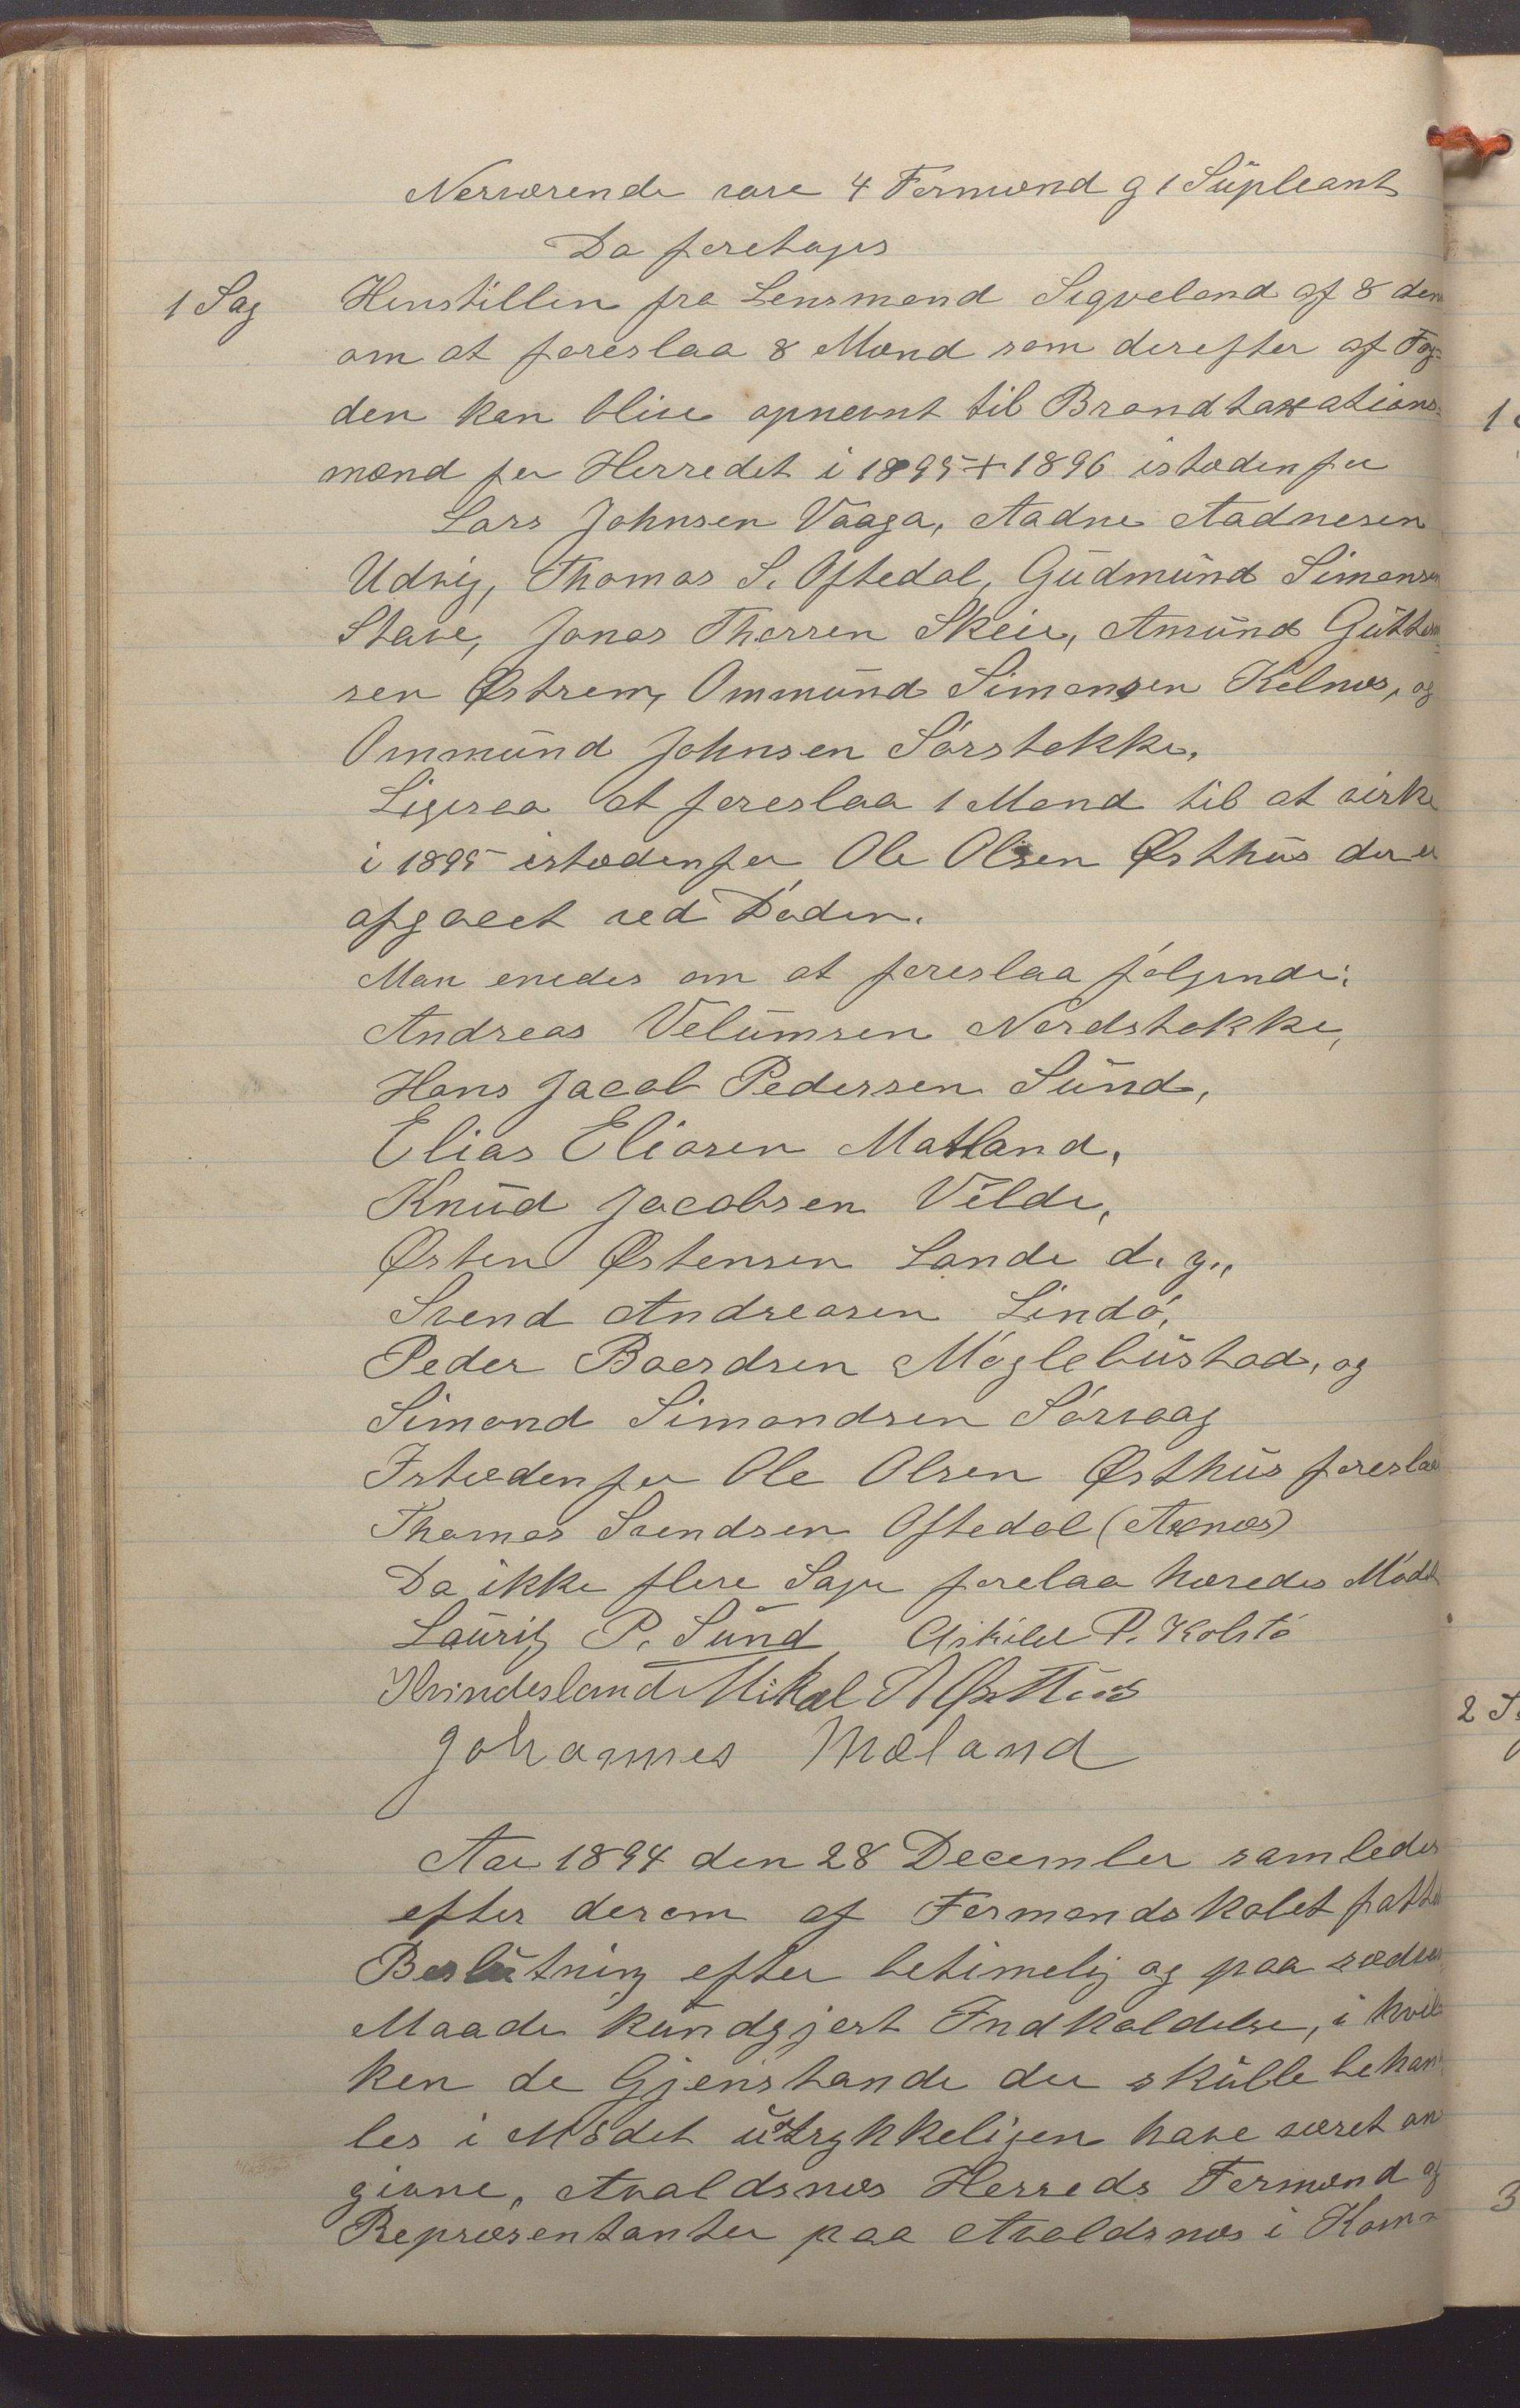 Nerværende vare 4 Formænd g 1 Supleant
Da foretages
1 Sag Henstillen fra Lensmand Sigveland af 8 den
om at foreslaa 8 Mænd som derefter af Fog-
den kan blive opnevnt til Brandtaxations-
mænd for Herredet i 1895 + 1896 istædenfor
Lars Johnsen Vaaga, Aadne Aadnesen
Udvig, Thomas S. Oftedal, Gudmund Simonsen
Stave, Jonas Thorsen Skeie, Amund Guttorm-
sen Østrem, Ommund Simonsen Kolnæs, og
Ommund Johnsen Sørstokke.
Ligesaa at foreslaa 1 Mand til at virke
i 1895 istædenfor Ole Olsen Østhus der er
afgaaet ved Døden.
Man enedes om at foreslaa følgende:
Andreas Velumsen Nordstokke,
Hans Jacob Pedersen Sund,
Elias Eliasen Matland,
Knud Jacobsen Vilde,
Østen Østensen Lande d. y.,
Svend Andreasen Lindø,
Peder Baardsen Møglebustad, og
Simond Simondsen Sørvaag
Istædenfor Ole Olsen Østhus foreslaaes
Thomas Svendsen Oftedal (Aanæs)
Da ikke flere Sager forelaa hævedes Mødet
Lauritz P. Sund Askild P. Kolstø
Kvindesland Mikal A Østhus
Johannes Mæland
Aar 1894 den 28 December samledes
efter derom af Formandskabet fattet
Beslutning efter betimelig og paa sædvanlig
Maade kundgjort Indkaldelse, i hvil-
ken de Gjenstande der skulle behand-
les i Mødet udtrykkeligen have været an-
givne, Avaldsnæs Herreds Formænd og
Repræsentanter paa Avaldsnæs i Kom-
1
2 S
3